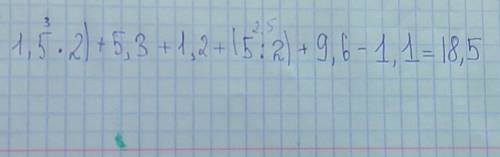 3 2,5
1,5 · 2) + 5,3 + 1,2 + (5 : 2) + 9,6 - 1,1 = 18,5